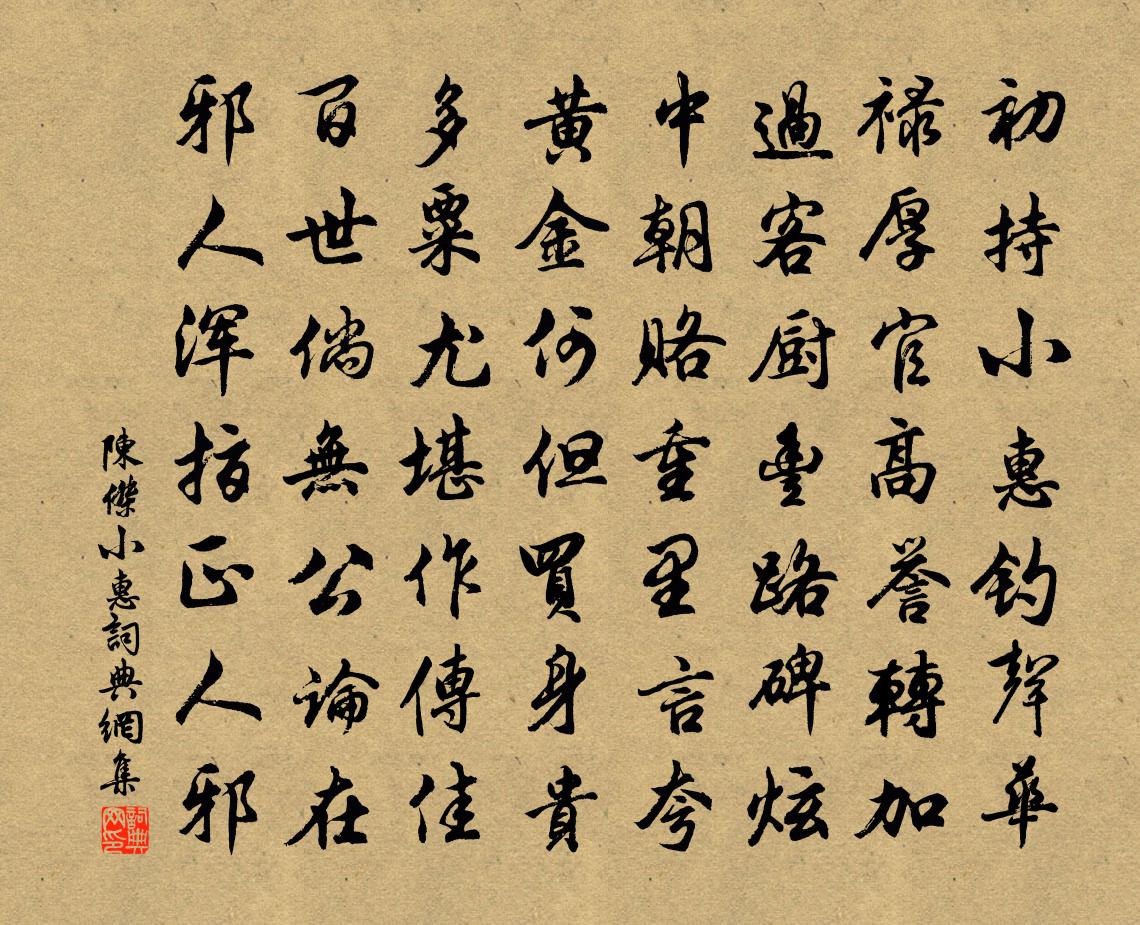 初持小惠釣聲華
禄厚官高譽轉加
過客厨豊路碑炫
中朝賂重里言夸
黄金何但買身貴
多粟尤堪作傳佳
百世倘無公論在
邪人浑指正人邪
陳傑小惠詞典網集
詞典网印